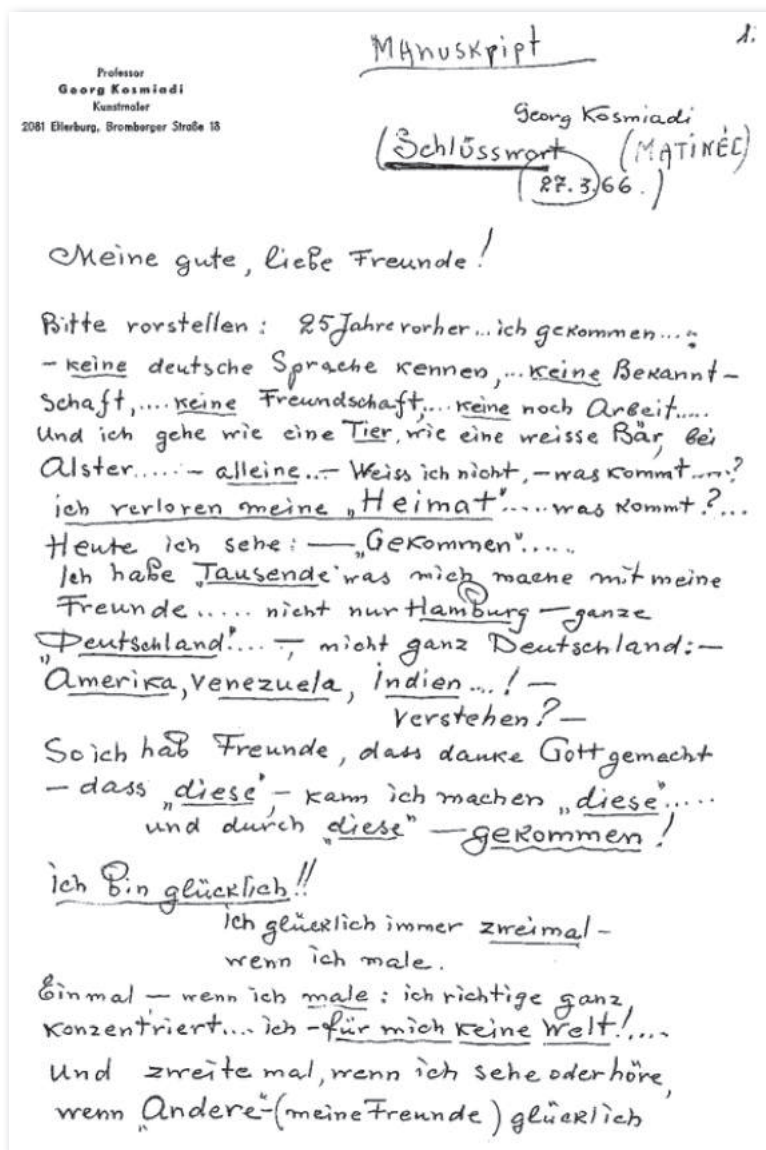 Manuskript
1.
Professor
Georg Kosmiadi
Kunstmaler
2081 Ellerburg, Bromberger Straße 18
Georg Kosmiadi
(Schlüsswort (MATINÉE)
(27.3.66.)
Meine gute, liebe Freunde!
Bitte vorstellen: 25 Jahre vorher... ich gekommen....:
- keine deutsche Sprache kennen,... keine Bekannt-
schaft,.... keine Freundschaft,.... keine noch Arbeit.....
Und ich gehe wie eine Tier, wie eine weisse Bär, bei
Alster..... - alleine... - Weiss ich nicht, - was kommt....?
ich verloren meine „Heimat"..... was kommt?...
Heute ich sehe: — „Gekommen".....
Ich habe „Tausende" was mich mache mit meine
Freunde..... nicht nur Hamburg — ganze
„Deutschland"!... —, nicht ganz Deutschland: —
Amerika, Venezuela, Indien...! —
Verstehen? —
So ich hab Freunde, dass danke Gott gemacht
— dass „diese" — kann ich machen „diese".....
und durch „diese" — gekommen!
ich bin glücklich!!
ich glücklich immer zweimal -
wenn ich male.
Einmal — wenn ich male: ich richtige ganz,
konzentriert.... ich - für mich keine Welt!....
Und zweite mal, wenn ich sehe oder höre,
wenn „Andere" - (meine Freunde) glücklich